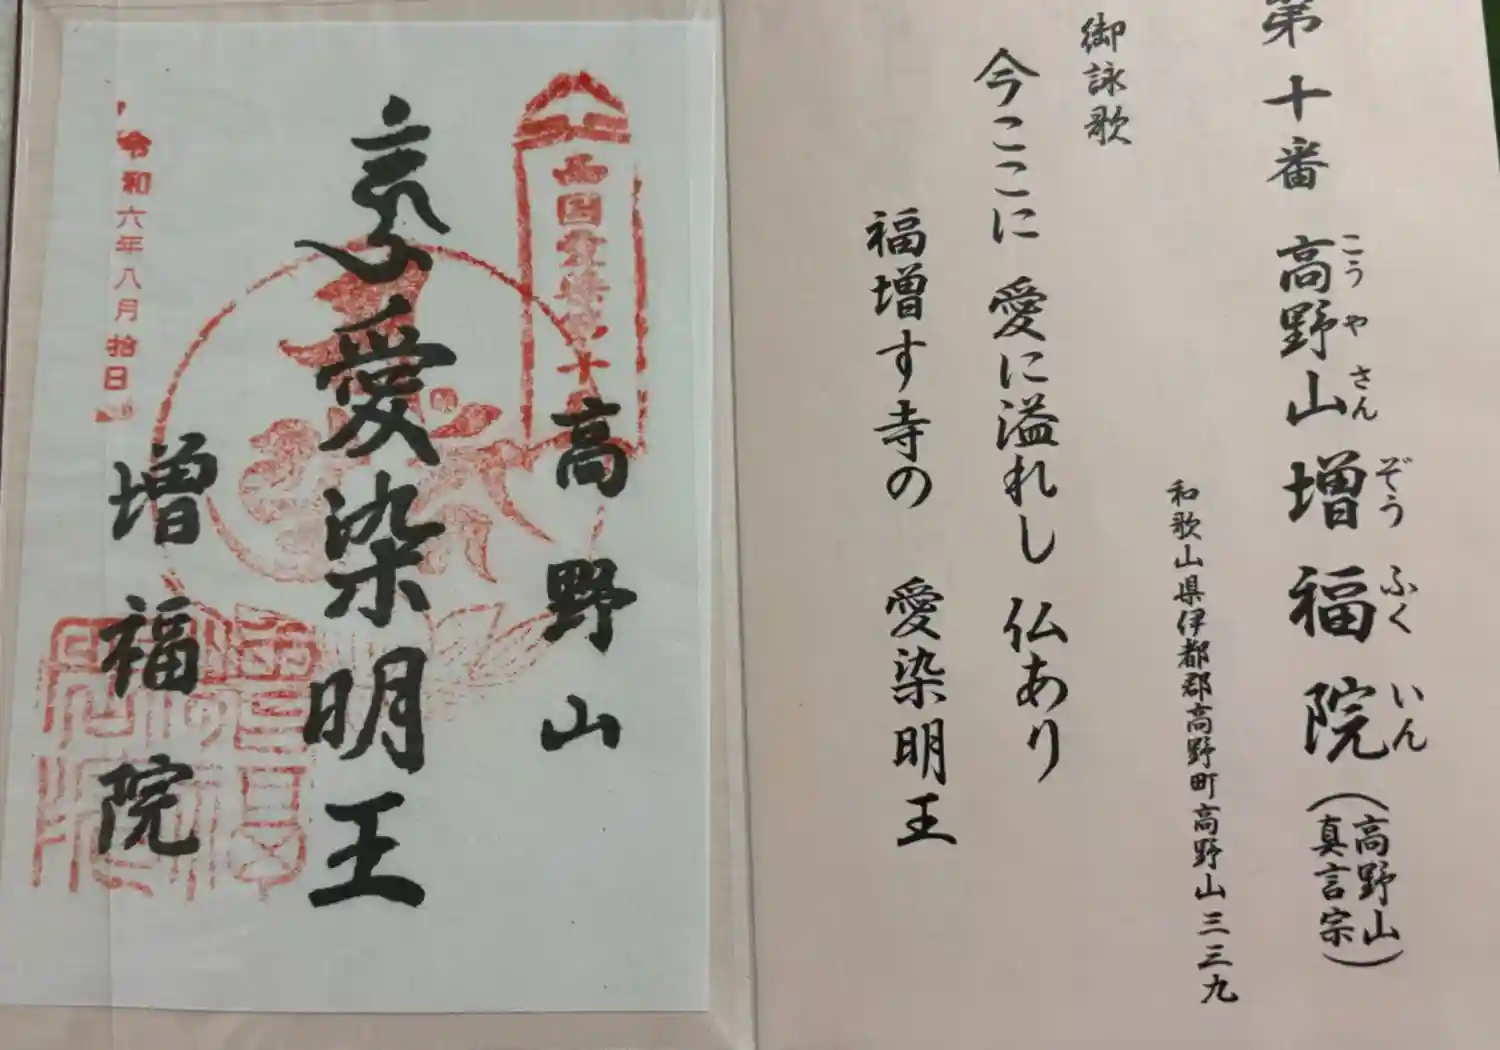 第十番 高野山増福院（高野山真言宗）
こうやさんぞうふくいん
和歌山県伊都郡高野町高野山三三九
御詠歌
今ここに 愛に溢れし 仏あり
福増す寺の 愛染明王
高野山
愛染明王
増福院
令和六年八月拾日